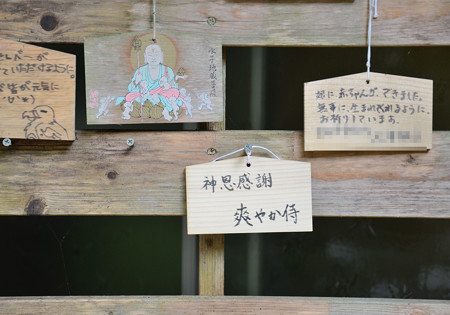 ンバーが
ていただけるように
が元気に
水子地蔵菩薩
神恩感謝
爽やか侍
娘に赤ちゃんができました。
無事に、生まれて来れるように、
お祈りしています。